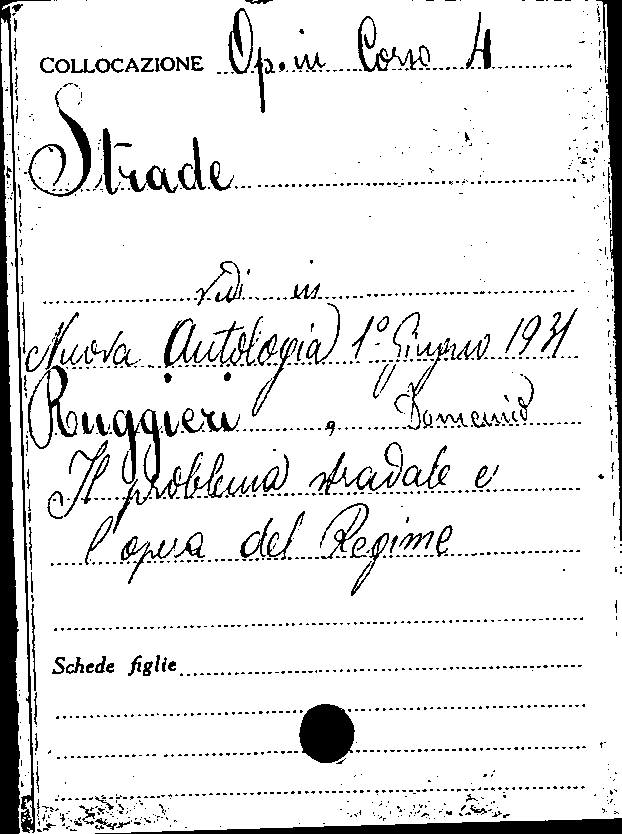 COLLOCAZIONE Op. in Corso 4
Strade
vedi in
Nuova Antologia 1º Giugno 1931
Ruggieri, Domenico
Il problema stradale e
l'opera del Regime
Schede figlie